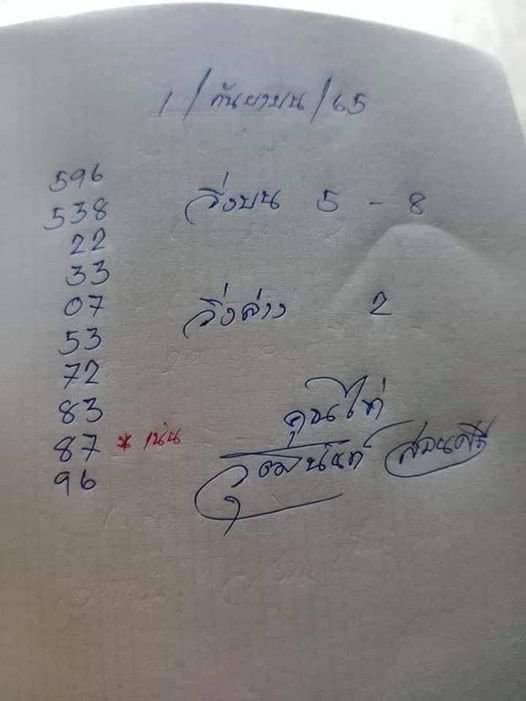 1/กันยายน/65
596
538
วิ่งบน 5 - 8
22
33
07
วิ่งล่าง 2
53
72
83
87 * เน้น
96